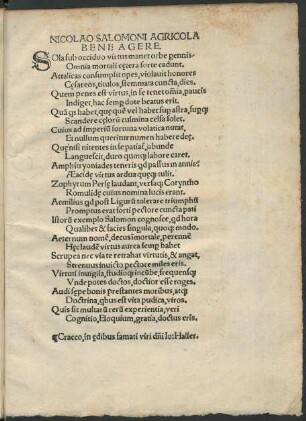 NICOLAO SALOMONI AGRICOLA
BENE AGERE.
SOla sub occiduo virtus manet orbe perennis
Omnia mortali cętera sorte cadunt.
Attalicas consumpsit opes, violauit honores
Cęsareos, titulos, stemmata cuncta, dies.
Quem penes est virtus, in se tenet omīa, pauc̄is
Indiget, hac semp̱ dote beatus erit.
Quā q̱s habet, quęq̱ȝ vel habet sup̱ astra, sup̱q̱ȝ
Scandere cęlorū culmina celsa solet.
Cuius ad imperiū fortuna volatica nutat,
Et nullum queritur numen habere deę.
Quę nisi nitentes in se patiaṯ, abunde
Languescit, duro quęq̱ȝ labore caret.
Amphitryoniades teneris qd̄ passus in annis?
Æacidę virtus ardua quęq̱ȝ tulit.
Zophyrum Persę laudant, versaq̱ȝ Coryntho
Romulidę cuius nomina lucis erant.
Aemilius qd̄ post Ligurū tolerare triumphū
Promptus erat forti pectore cuncta pati
Istorū exemplo Salomon cognosce, qd̄ hora
Qualibet & facies singula, quoq̱ȝ modo.
Aeternum nomē, decus īmortale, perennē
Hęc laudē virtus aurea semp̱ habet
Scrupea nec via te retrahat virtutis, & angat,
Strenuus inuicto pectare miles eris.
Virtuti inuigila, studioq̱ȝ incūbe, frequensq̱ȝ
Vnde potes doctos, doctior esse roges.
Audi sępe bonis prestantes moribus, atq̱ȝ
Doctrina, q̱bus est vita pudica, viros.
Quis sit multarū rerū experientia, veri
Cognitio, Eloquium, gratia, doctus eris.
¶Cracco, in ędibus famati viri dn̄i Io: Haller.